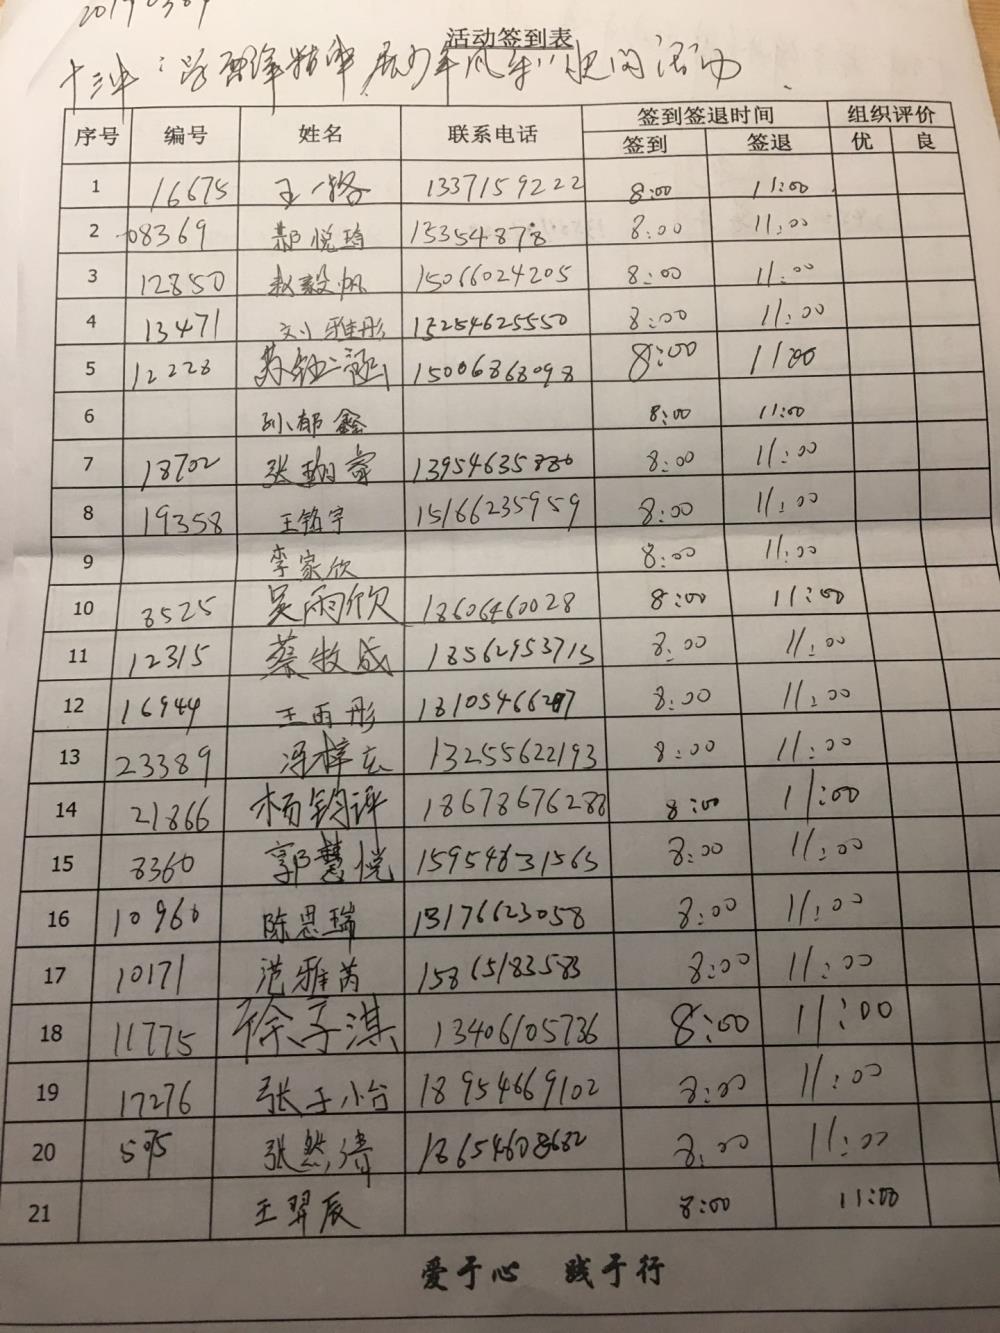 活动签到表
十三中："学雷锋精神 展少年风采"快闪活动
序号 编号 姓名 联系电话 签到签退时间 组织评价
签到 签退 优 良
1 16675 王一铭 13371559222 8:00 11:00
2 08369 郝悦琦 15354878 8:00 11:00
3 12850 赵毅帆 15066024205 8:00 11:00
4 13471 刘雅彤 15254625550 8:00 11:00
5 12228 苏钰涵 15006868098 8:00 11:00
6 孙郁鑫 8:00 11:00
7 18702 张翔睿 13954635880 8:00 11:00
8 19358 王铭宇 15166235959 8:00 11:00
9 李家欣 8:00 11:00
10 8525 吴雨欣 18606460028 8:00 11:00
11 12315 蔡牧成 18562953715 8:00 11:00
12 16944 王雨彤 18105466297 8:00 11:00
13 23389 冯梓玄 13255622193 8:00 11:00
14 21866 杨钧评 18678676288 8:00 11:00
15 8360 郭慧悦 15954831563 8:00 11:00
16 10960 陈思瑞 13176623058 8:00 11:00
17 10171 范雅芮 15865183583 8:00 11:00
18 11775 徐子淇 13406105736 8:00 11:00
19 17276 张于小台 18954669102 8:00 11:00
20 张然清 18654608682 8:00 11:00
21 王羿辰 8:00 11:00
爱于心 践于行